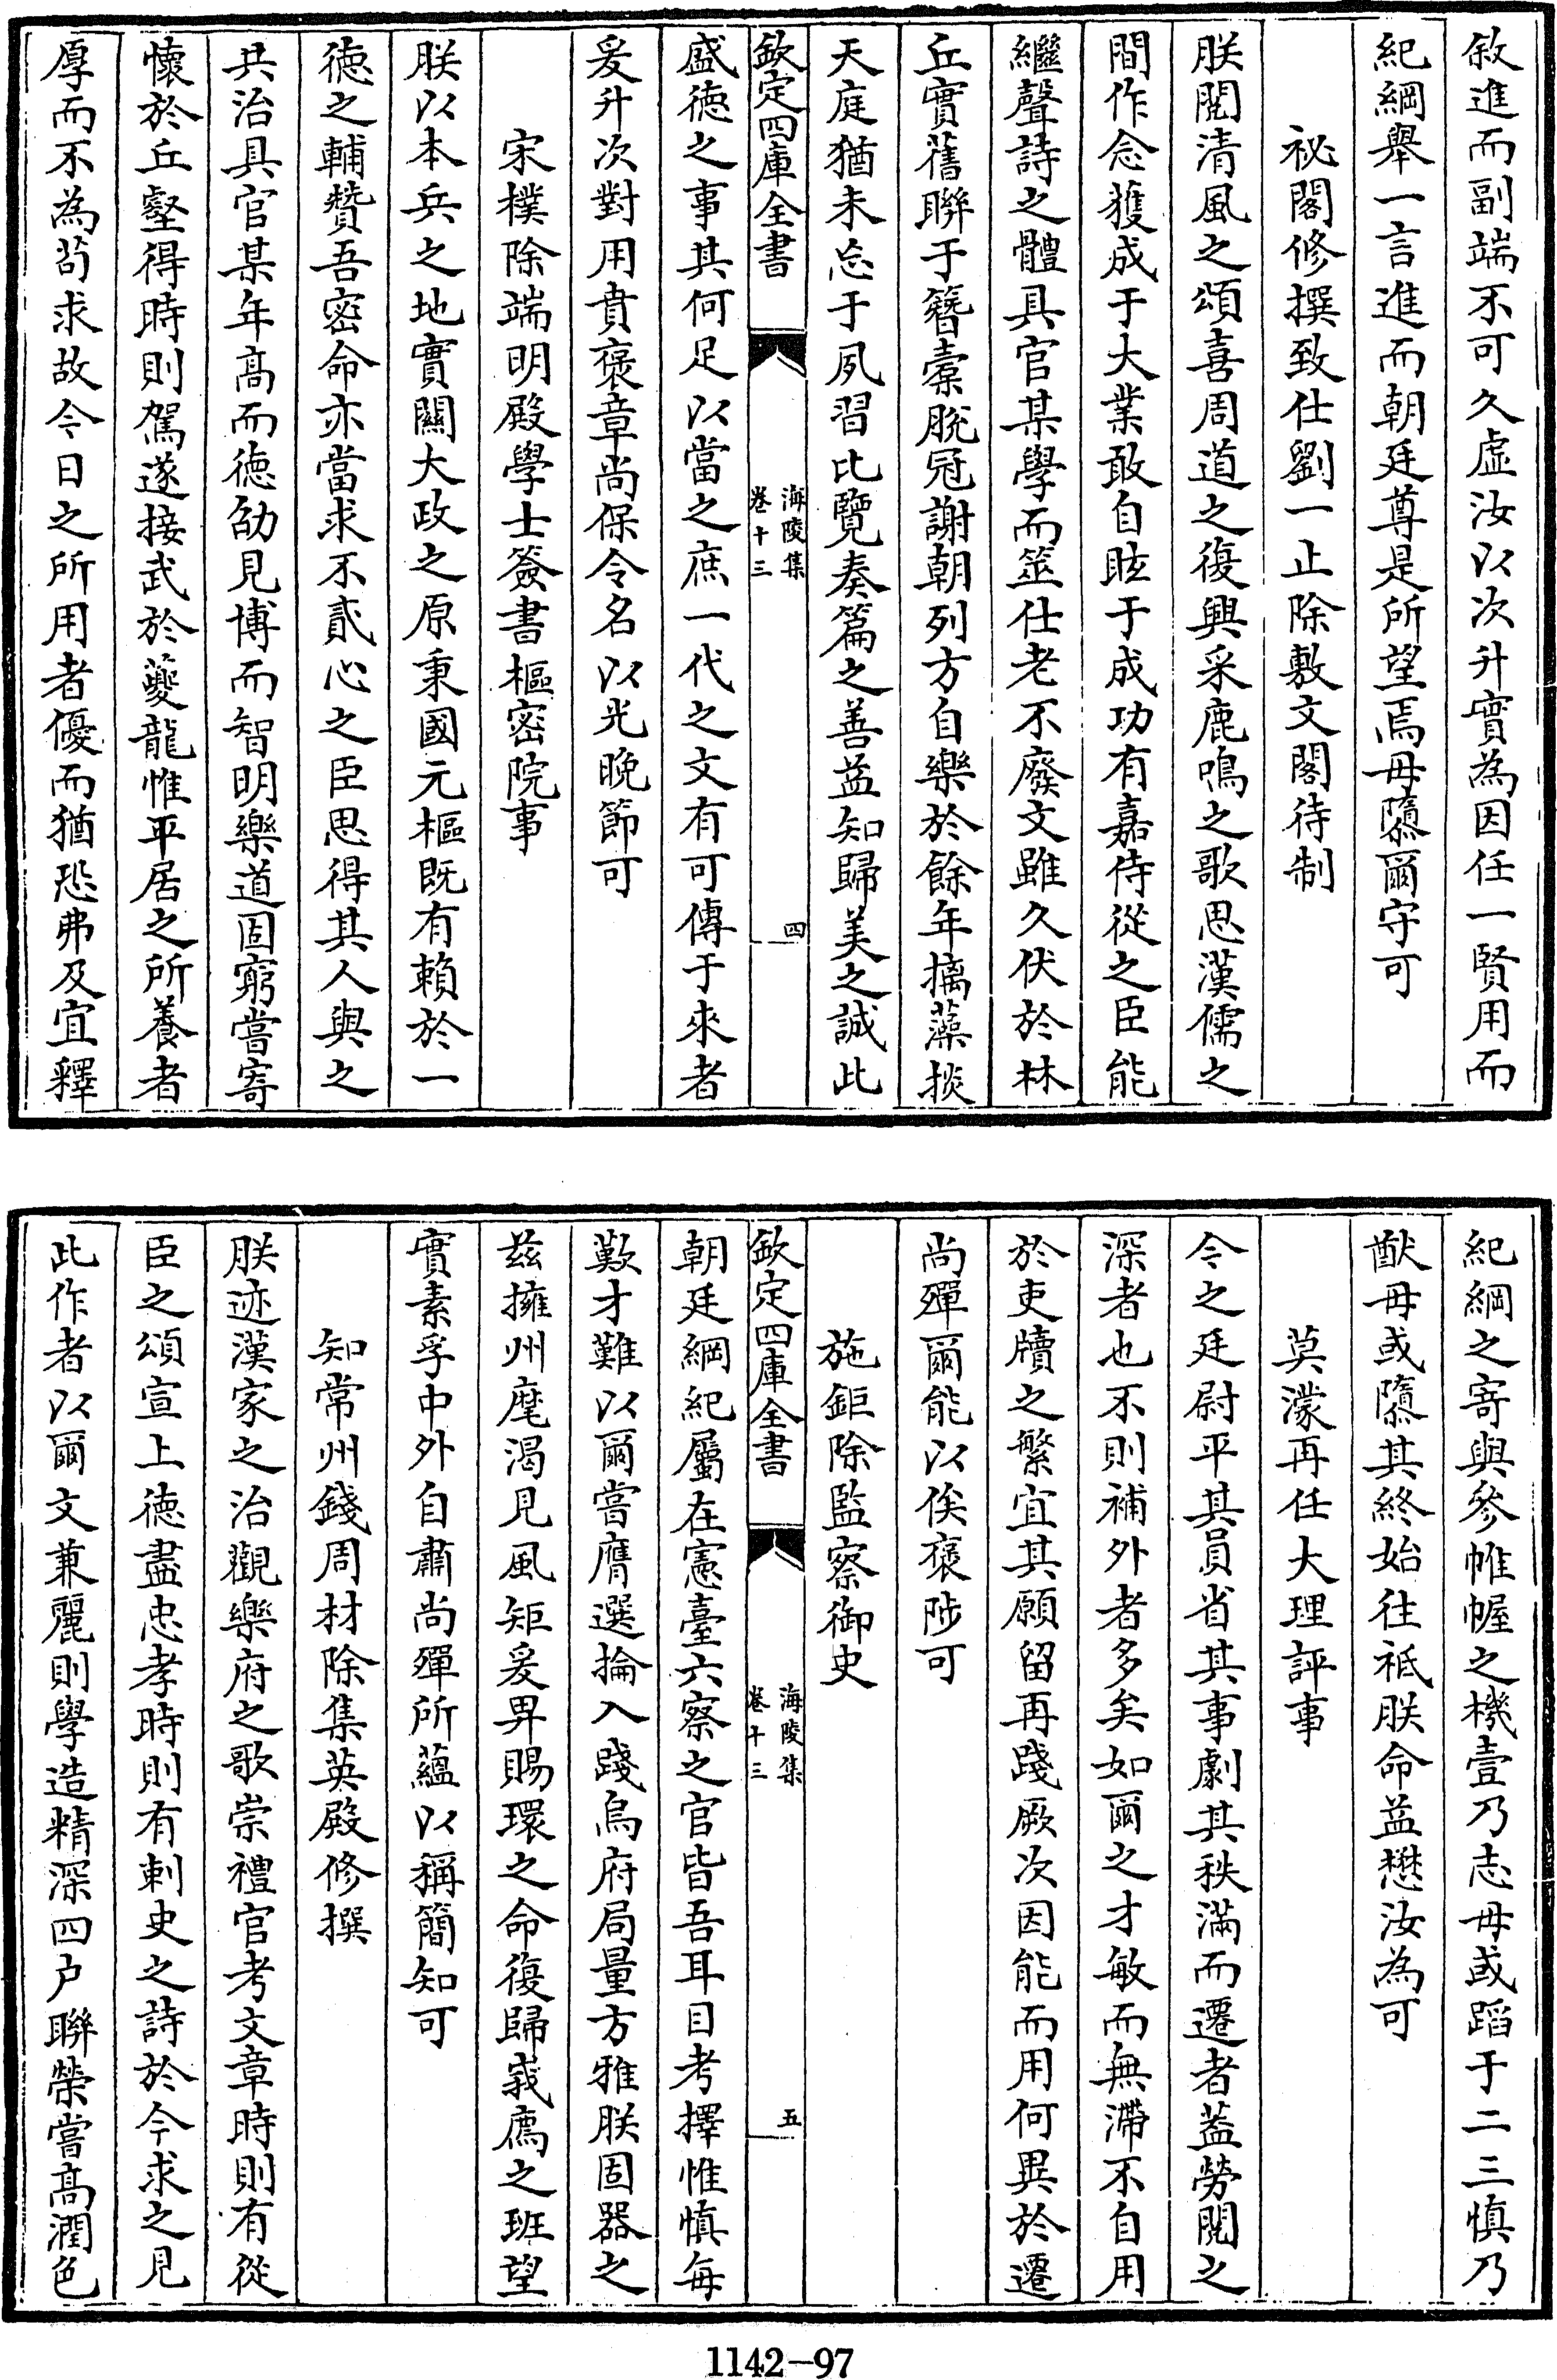 敘進而副端不可久虛汝以次升實為因任一賢用而
紀綱舉一言進而朝廷尊是所望焉毋隳爾守可
祕閣修撰致仕劉一止除敷文閣待制
朕閱清風之頌喜周道之復興采鹿鳴之歌思漢儒之
間作念獲成于大業敢自眩于成功有嘉侍從之臣能
繼聲詩之體具官某學而筮仕老不廢文雖久伏於林
丘實舊聯于簪橐脫冠謝朝列方自樂於餘年摛藻掞
天庭猶未忘于夙習比覽奏篇之善益知歸美之誠此
欽定四庫全書
海陵集
卷十三
四
盛德之事其何足以當之庶一代之文有可傳于來者
爰升次對用賁褒章尚保令名以光晚節可
宋樸除端明殿學士簽書樞密院事
朕以本兵之地實關大政之原秉國元樞既有賴於一
德之輔贊吾密命亦當求不貳心之臣思得其人與之
共治具官某年高而德劭見博而智明樂道固窮嘗寄
懷於丘壑得時則駕遂接武於夔龍惟平居之所養者
厚而不為茍求故今日之所用者優而猶恐弗及宜釋
紀綱之寄與參帷幄之機壹乃志毋或蹈于二三慎乃
猷毋或隳其終始往祇朕命益懋汝為可
莫濛再任大理評事
今之廷尉平其員省其事劇其秩滿而遷者蓋勞閱之
深者也不則補外者多矣如爾之才敏而無滯不自用
於吏牘之繁宜其願留再踐厥次因能而用何異於遷
尚殫爾能以俟褒陟可
施鉅除監察御史
欽定四庫全書
海陵集
卷十三
五
朝廷綱紀屬在憲臺六察之官皆吾耳目考擇惟慎每
歎才難以爾嘗膺選掄入踐烏府局量方雅朕固器之
茲擁州麾渴見風矩爰畀賜環之命復歸峩廌之班望
實素孚中外自肅尚殫所蘊以稱簡知可
知常州錢周材除集英殿修撰
朕迹漢家之治觀樂府之歌崇禮官考文章時則有從
臣之頌宣上德盡忠孝時則有刺史之詩於今求之見
此作者以爾文兼麗則學造精深四戶聯榮嘗高潤色
1142-97